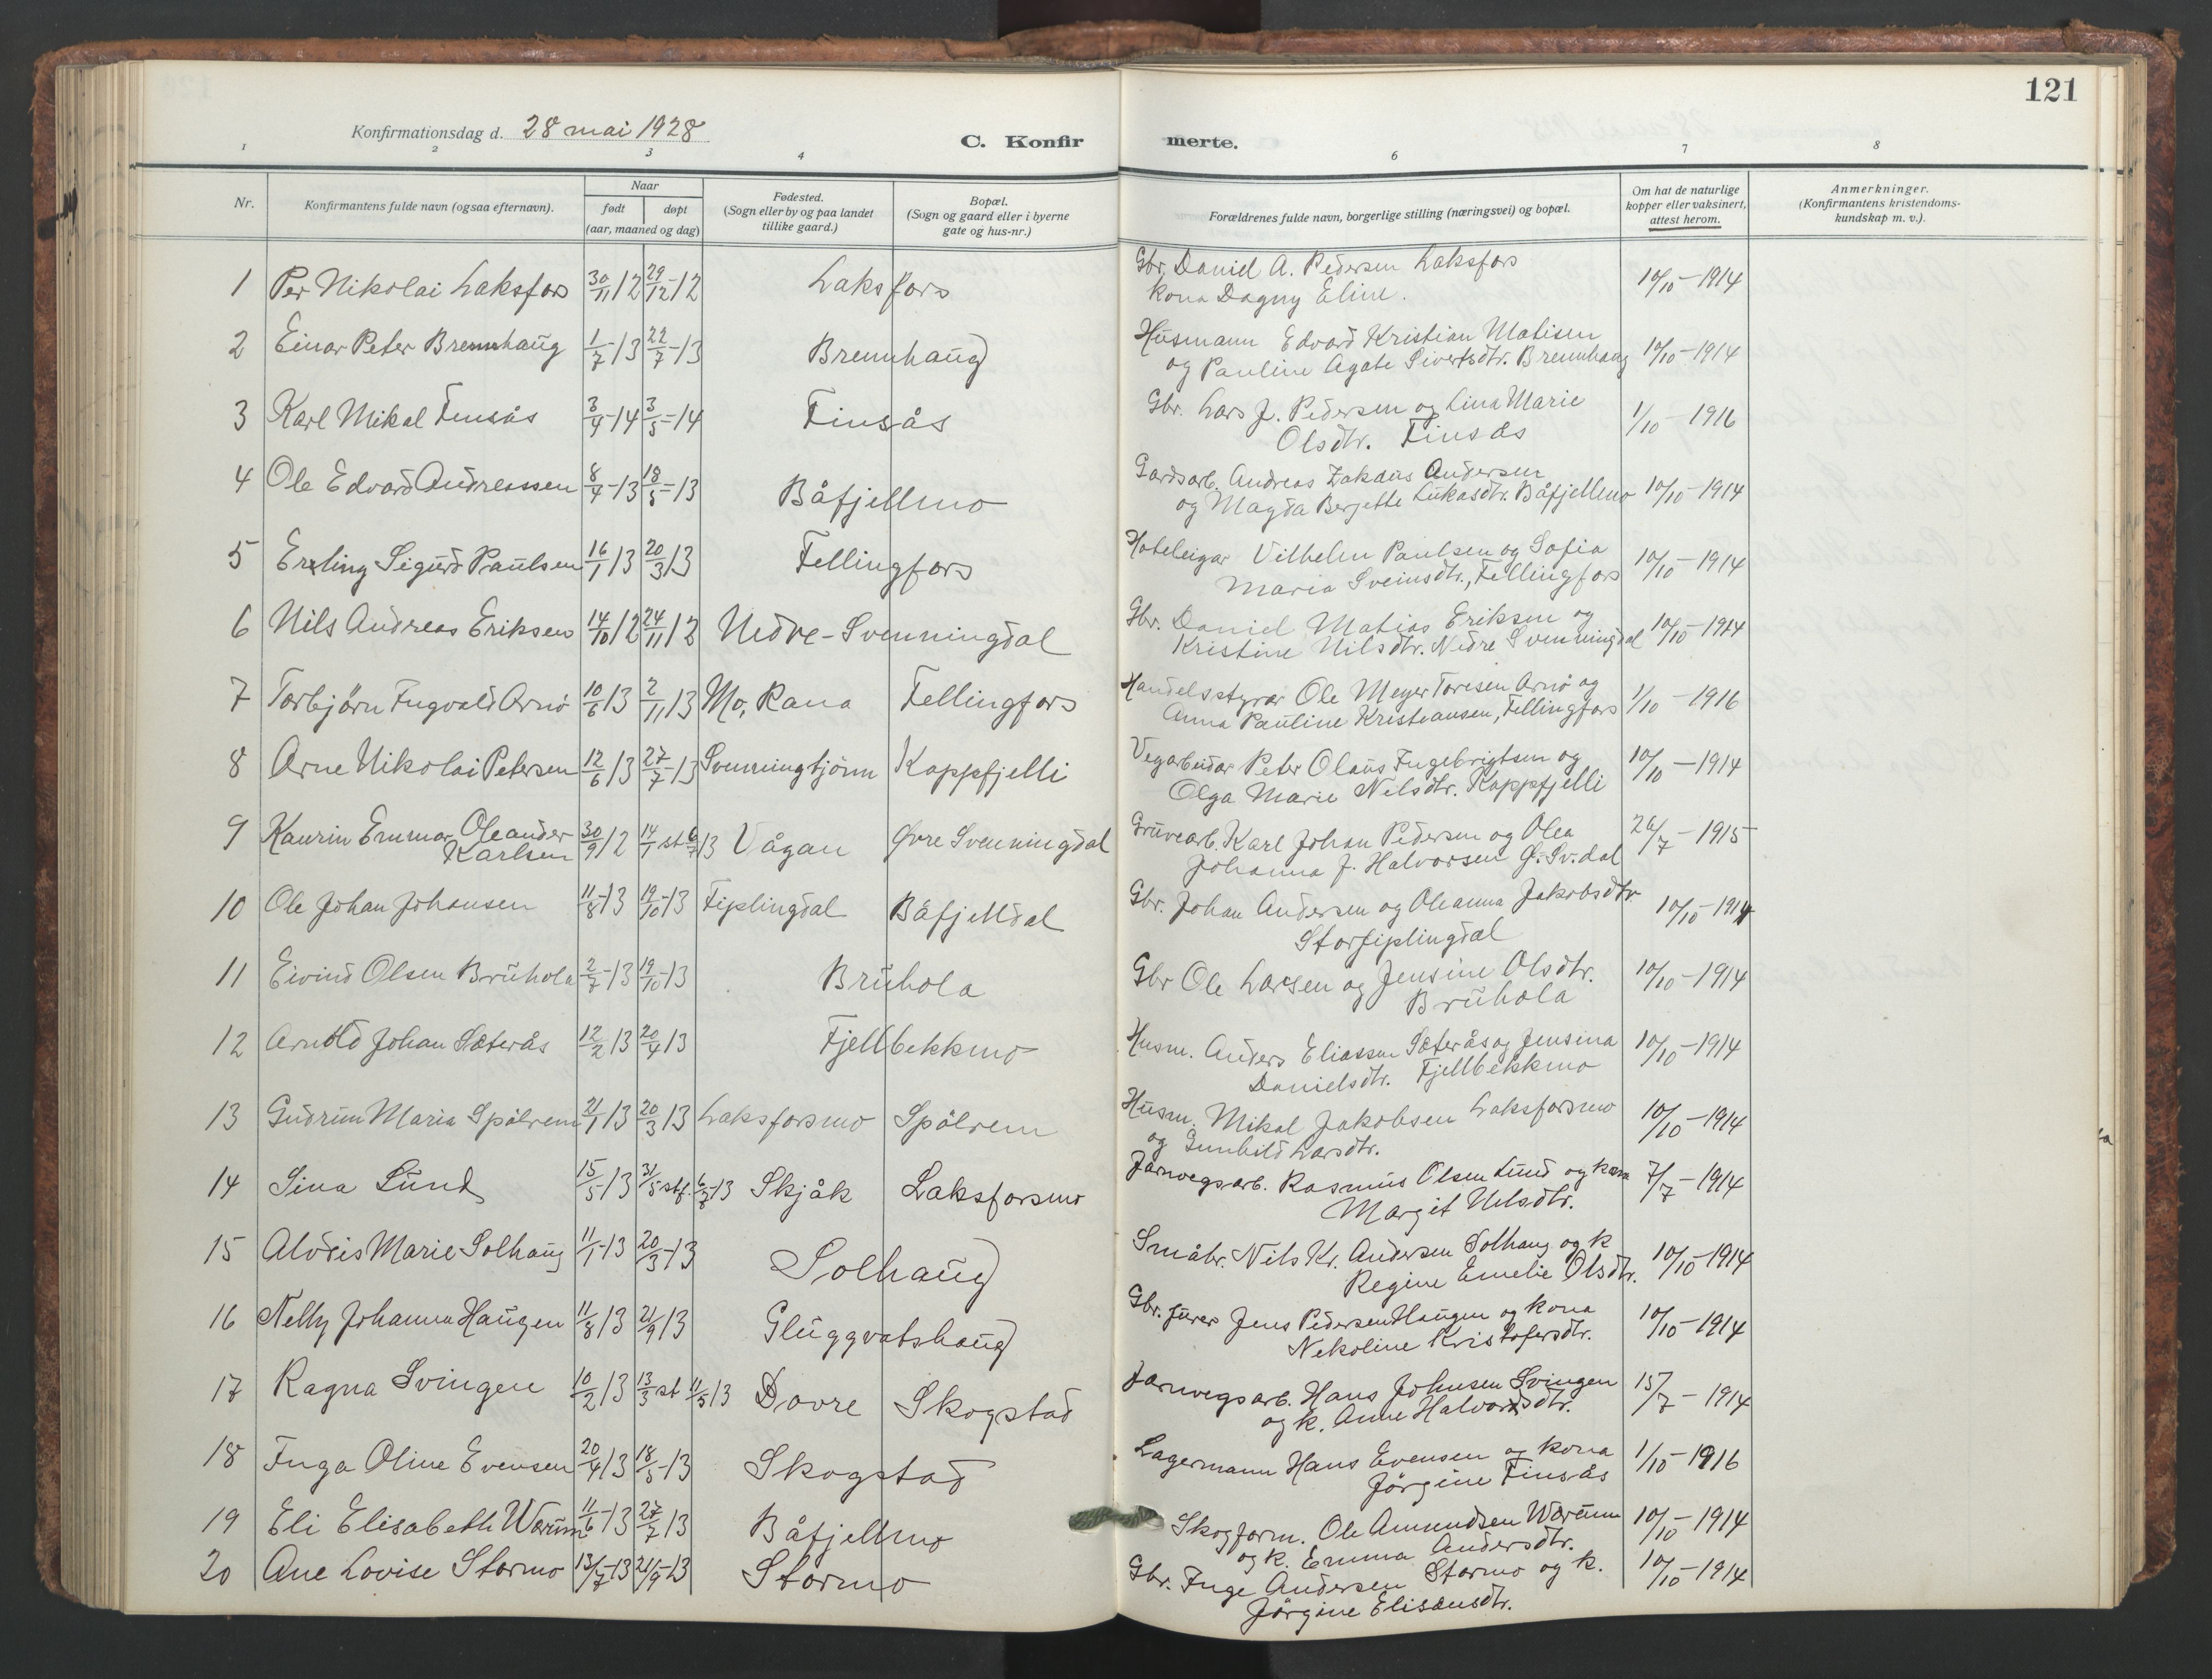 121
Konfirmationsdag d. 28 mai 1928
C. Konfirmerte.
1 2 3 4 6 7 8
Nr.
Konfirmantens fulde navn (ogsaa efternavn).
Naar
født
døpt
(aar, maaned og dag)
Fødested.
(Sogn eller by og paa landet
tillike gaard.)
Bopæl.
(Sogn og gaard eller i byerne
gate og hus-nr.)
Forældrenes fulde navn, borgerlige stilling (næringsvei) og bopæl.
Om hat de naturlige
kopper eller vaksinert,
attest herom.
Anmerkninger.
(Konfirmantens kristendoms-
kundskap m. v.).
1 Per Nikolai Laksfors 30/11 12 29/12 12 Laksfors Gbr. Daniel A. Pedersen Laksfors
kona Dagny Eline. 10/10-1914
2 Einar Peter Brennhaug 1/7-13 22/7-13 Brennhaug Husmann Edvard Kristian Matisen
og Pauline Agate Sivertsdtr. Brennhaug 10/10-1914
3 Karl Mikal Finsås 3/4-14 3/5-14 Finsås Gbr. Lars J. Pedersen og Lina Marie
Olsdtr. Finsås 1/10-1916
4 Ole Edvard Andreassen 8/4-13 18/5-13 Båfjellmo Gardsarb. Andreas Zakæus Andersen
og Magda Berjette Lukasdtr. Båfjellmo 10/10-1914
5 Erling Sigurd Paulsen 16/1 13 20/3 13 Fellingfors Hoteleigar Vilhelm Paulsen og Sofia
Maria Sveinsdtr., Fellingfors 10/10-1914
6 Nils Andreas Eriksen 14/10 12 24/11 12 Nedre-Svenningdal Gbr. Daniel Matias Eriksen og
Kristine Nilsdtr. Nedre Svenningdal 10/10-1914
7 Torbjörn Ingvald Arnö 10/6 13 2/11 13 Mo, Rana Fellingfors Handelsstyrar Ole Meyer Toresen Arnö og
Anna Pauline Kristiansen, Fellingfors 1/10-1916
8 Arne Nikolai Petersen 12/6 13 27/7-13 Svenningtjönn Kappfjelli Vegarbeidar Peter Olaus Ingebrigtsen og
Olga Marie Nilsdtr. Kappfjelli 10/10-1914
9 Kaurin Emmar Oleander
Karlsen 30/9 12 14/1 st 6/7 13 Vågan Øvre Svenningdal Gruvearb. Karl Johan Pedersen og Olea
Johanna J. Halvorsen Ø.-Sv.dal 26/7-1915
10 Ole Johan Johansen 11/8-13 19/10-13 Fiplingdal Båfjelldal Gbr. Johan Andersen og Oleanna Jakobsdtr
Storfiplingdal 10/10-1914
11 Eivind Olsen Bruhola 2/7-13 19/10-13 Bruhola Gbr Ole Larsen og Jensine Olsdtr.
Bruhola 10/10-1914
12 Arnold Johan Sæterås 12/2 13 20/4 13 Fjellbekkmo Husm. Anders Eliassen Sæterås og Jensina
Danielsdtr. Fjellbekkmo 10/10-1914
13 Gudrun Maria Spålrem 21/1 13 20/3 13 Laksforsmo Spålrem Husm. Mikal Jakobsen Laksforsmo
og Gunhild Larsdtr. 10/10-1914
14 Sina Lund 15/5 13 31/5 stf. 6/7 13 Skjåk Laksforsmo Jarnvegsarb. Rasmus Olsen Lund og kona
Margit Nilsdtr. 7/7-1914
15 Aldis Marie Solhaug 11/1-13 20/3-13 Solhaug Småbr. Nils Kr. Andersen Solhaug og k
Regine Emelie Olsdtr. 10/10-1914
16 Nelly Johanna Haugen 11/8 13 21/9 13 Gluggvatshaug Gbr. Jens Pedersen Haugen og kona
Nekoline Kristofersdtr. 10/10-1914
17 Ragna Svingen 10/2 13 13/3 st 11/5 13 Dovre Skogstad Jarnvegsarb. Hans Johnsen Svingen
og k. Anne Halvordsdtr. 15/7-1914
18 Inga Oline Evensen 20/4 13 18/5-13 Skogstad Lagermann Hans Evensen og kona
Jörgine Finsås 1/10-1916
19 Eli Elisabeth Wærum 11/6-13 27/7 13 Båfjellmo Skogform. Ole Amundsen Wærum
og k. Emma Andersdtr. 10/10-1914
20 Ane Lovise Stormo 13/7-13 21/9-13 Stormo Gbr. Inge Andersen Stormo og k.
Jörgine Elisæusdtr. 10/10-1914